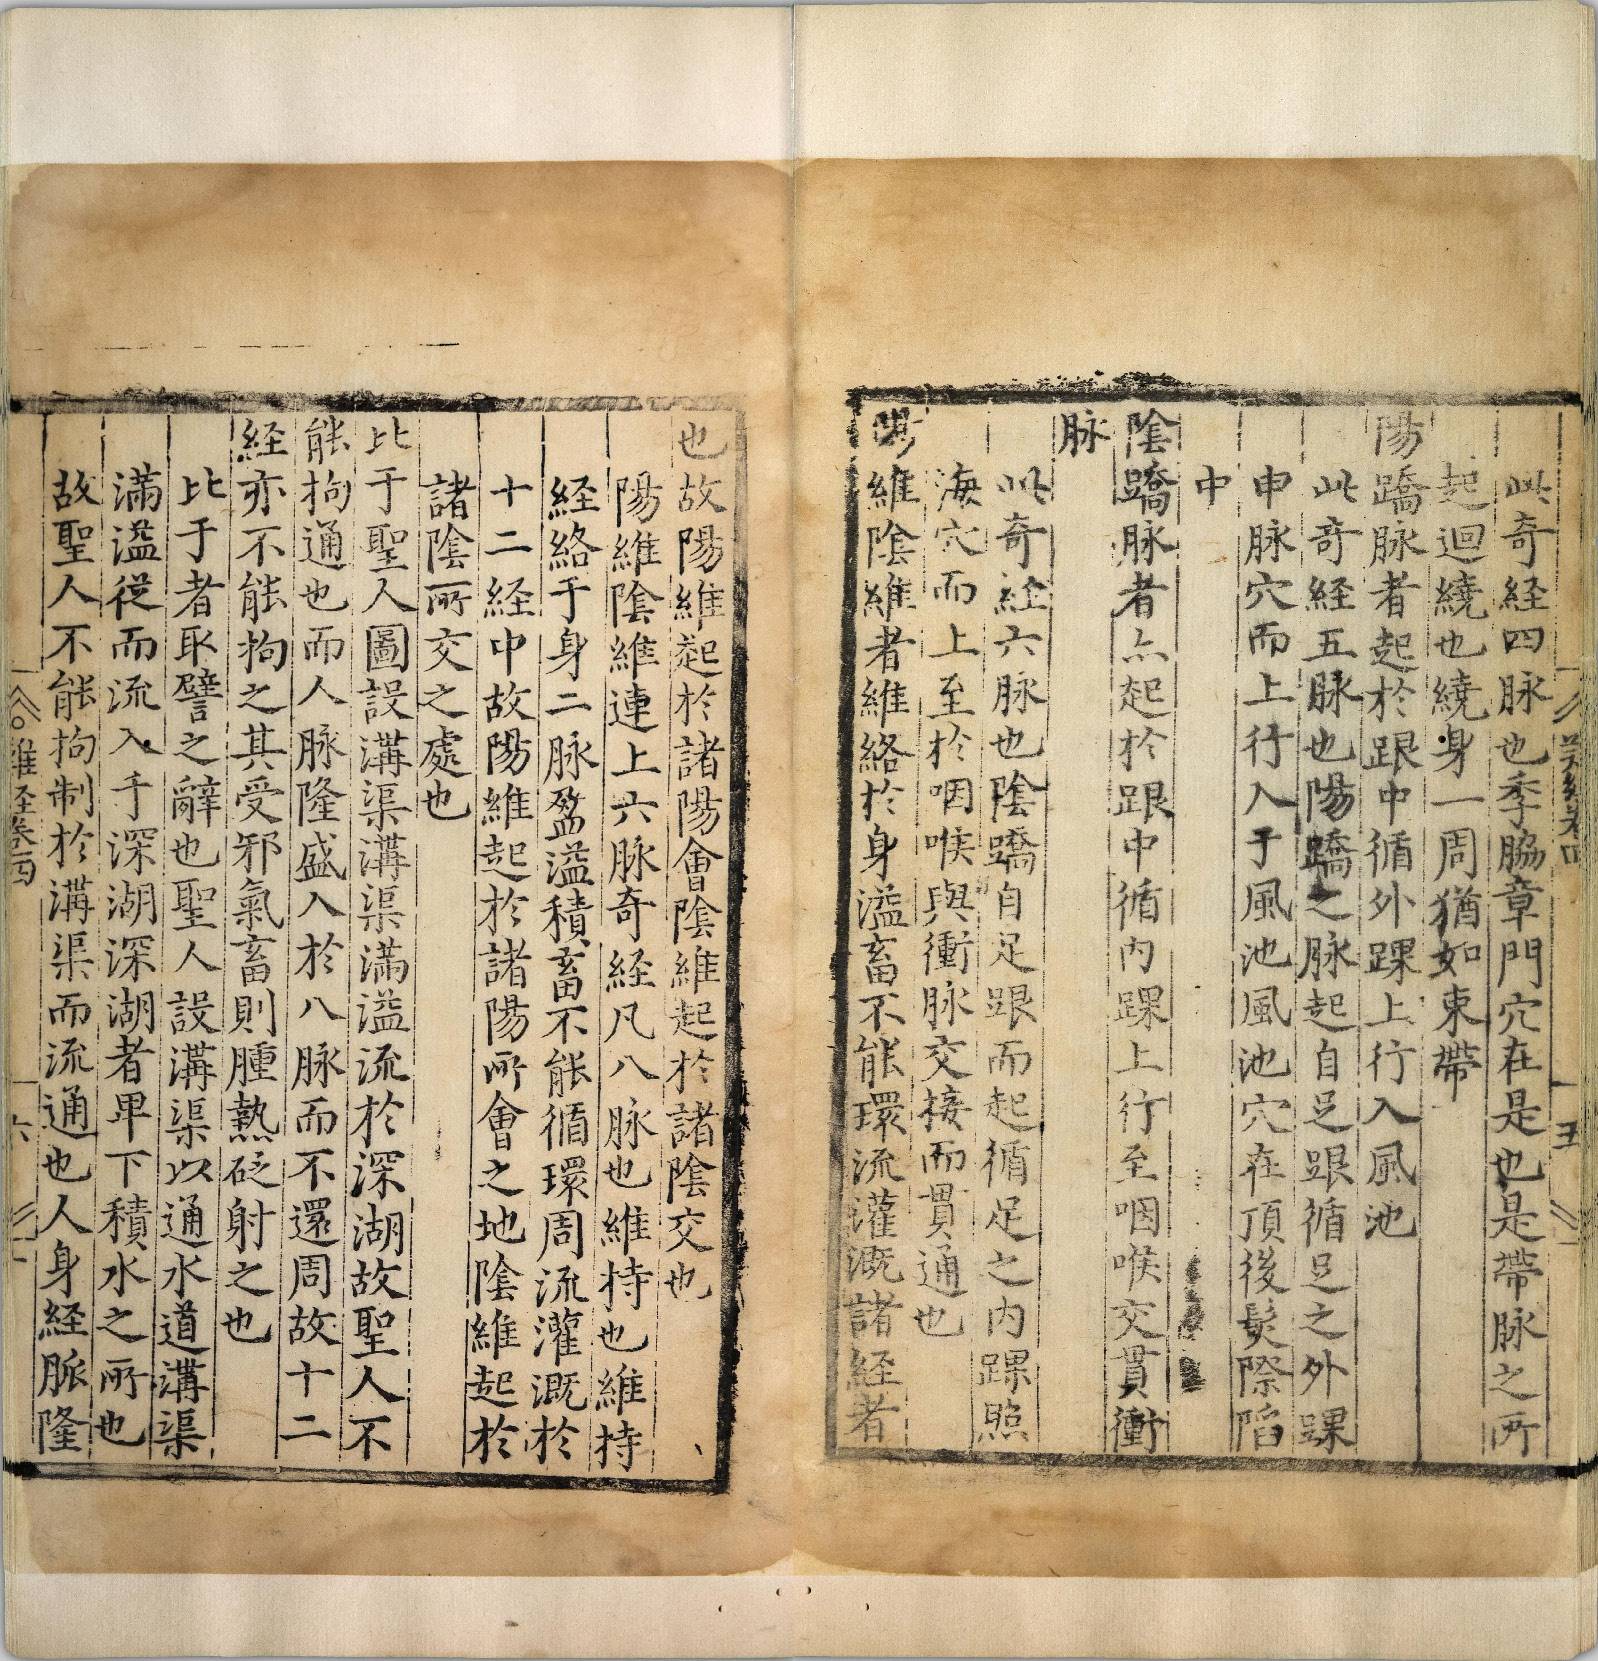 此奇経四脉也季脇章門穴在是也是帶脉之所
起迴繞也繞身一周猶如束帶
陽蹻脉者起於跟中循外踝上行入風池
此奇経五脉也陽蹻之脉起自足跟循足之外踝
申脉穴而上行入于風池風池穴在頂後髮際陷
中
陰蹻脉者亦起於跟中循內踝上行至咽喉交貫衝
脉
此奇経六脉也陰蹻自足跟而起循足之內踝照
海穴而上至於咽喉與衝脉交接而貫通也
陽維陰維者維絡於身溢畜不能環流灌溉諸経者
也故陽維起於諸陽會陰維起於諸陰交也
陽維陰維連上六脉奇経凡八脉也維持也維持
経絡于身二脉盈溢積畜不能循環周流灌溉於
十二経中故陽維起於諸陽所會之地陰維起於
諸陰所交之處也
比于聖人圖設溝渠溝渠滿溢流於深湖故聖人不
能拘通也而人脉隆盛入於八脉而不還周故十二
経亦不能拘之其受邪氣畜則腫熱砭射之也
比于者取譬之辭也聖人設溝渠以通水道溝渠
滿溢從而流入于深湖深湖者卑下積水之所也
故聖人不能拘制於溝渠而流通也人身経脈隆
难経卷四
六
五